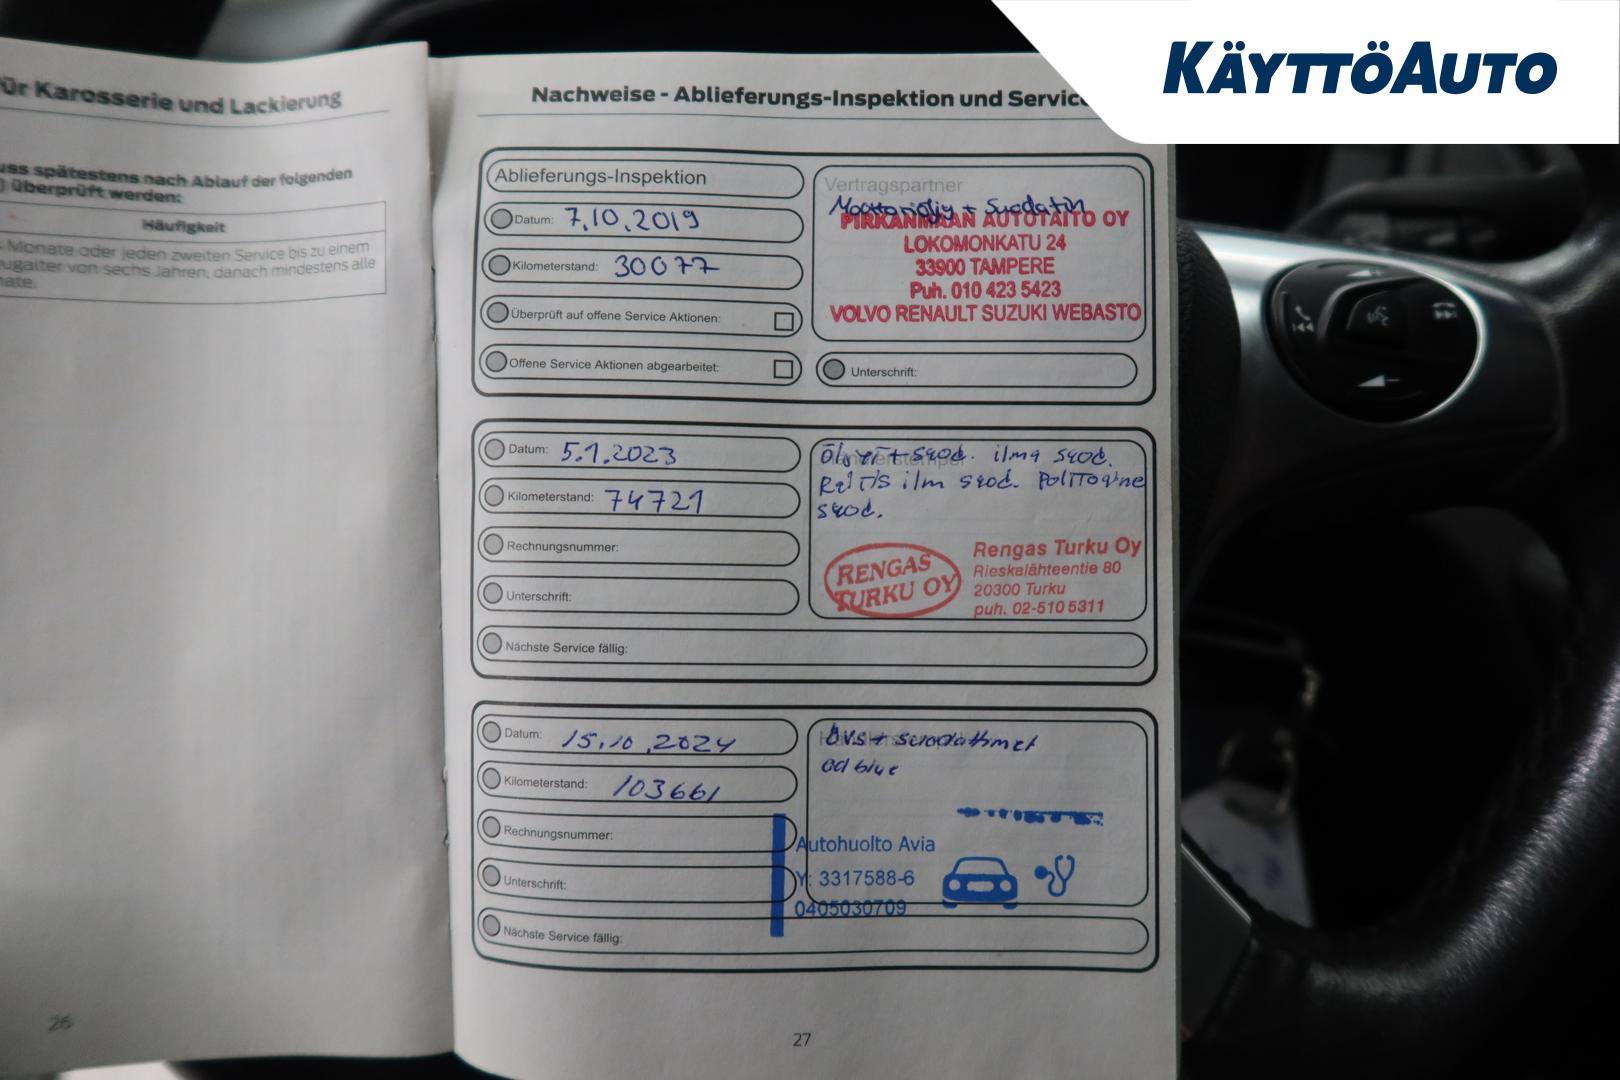 KÄYTTÖAUTO
ür Karosserie und Lackierung
uss spätestens nach Ablauf der folgenden
) überprüft werden:
Häufigkeit
Monate oder jeden zweiten Service bis zu einem
ugalter von sechs Jahren, danach mindestens alle
nate.
26
Nachweise - Ablieferungs-Inspektion und Service
Ablieferungs-Inspektion
Datum: 7.10.2019
Kilometerstand: 30077
Überprüft auf offene Service Aktionen:
Offene Service Aktionen abgearbeitet:
Vertragspartner
Moottoriöljy + Suodatin
PIRKANMAAN AUTOTAITO OY
LOKOMONKATU 24
33900 TAMPERE
Puh. 010 423 5423
VOLVO RENAULT SUZUKI WEBASTO
Unterschrift:
Datum: 5.1.2023
Kilometerstand: 74721
Rechnungsnummer:
Unterschrift:
Nächste Service fällig:
Öljyt + suod. ilma suod.
Raitis ilm suod. Polttoaine
suod.
RENGAS
TURKU OY
Rengas Turku Oy
Rieskalähteentie 80
20300 Turku
puh. 02-510 5311
Datum: 15.10.2024
Kilometerstand: 103661
Rechnungsnummer:
Unterschrift:
Nächste Service fällig:
övs + suodattimet
ad blue
Autohuolto Avia
Y: 3317588-6
0405030709
27